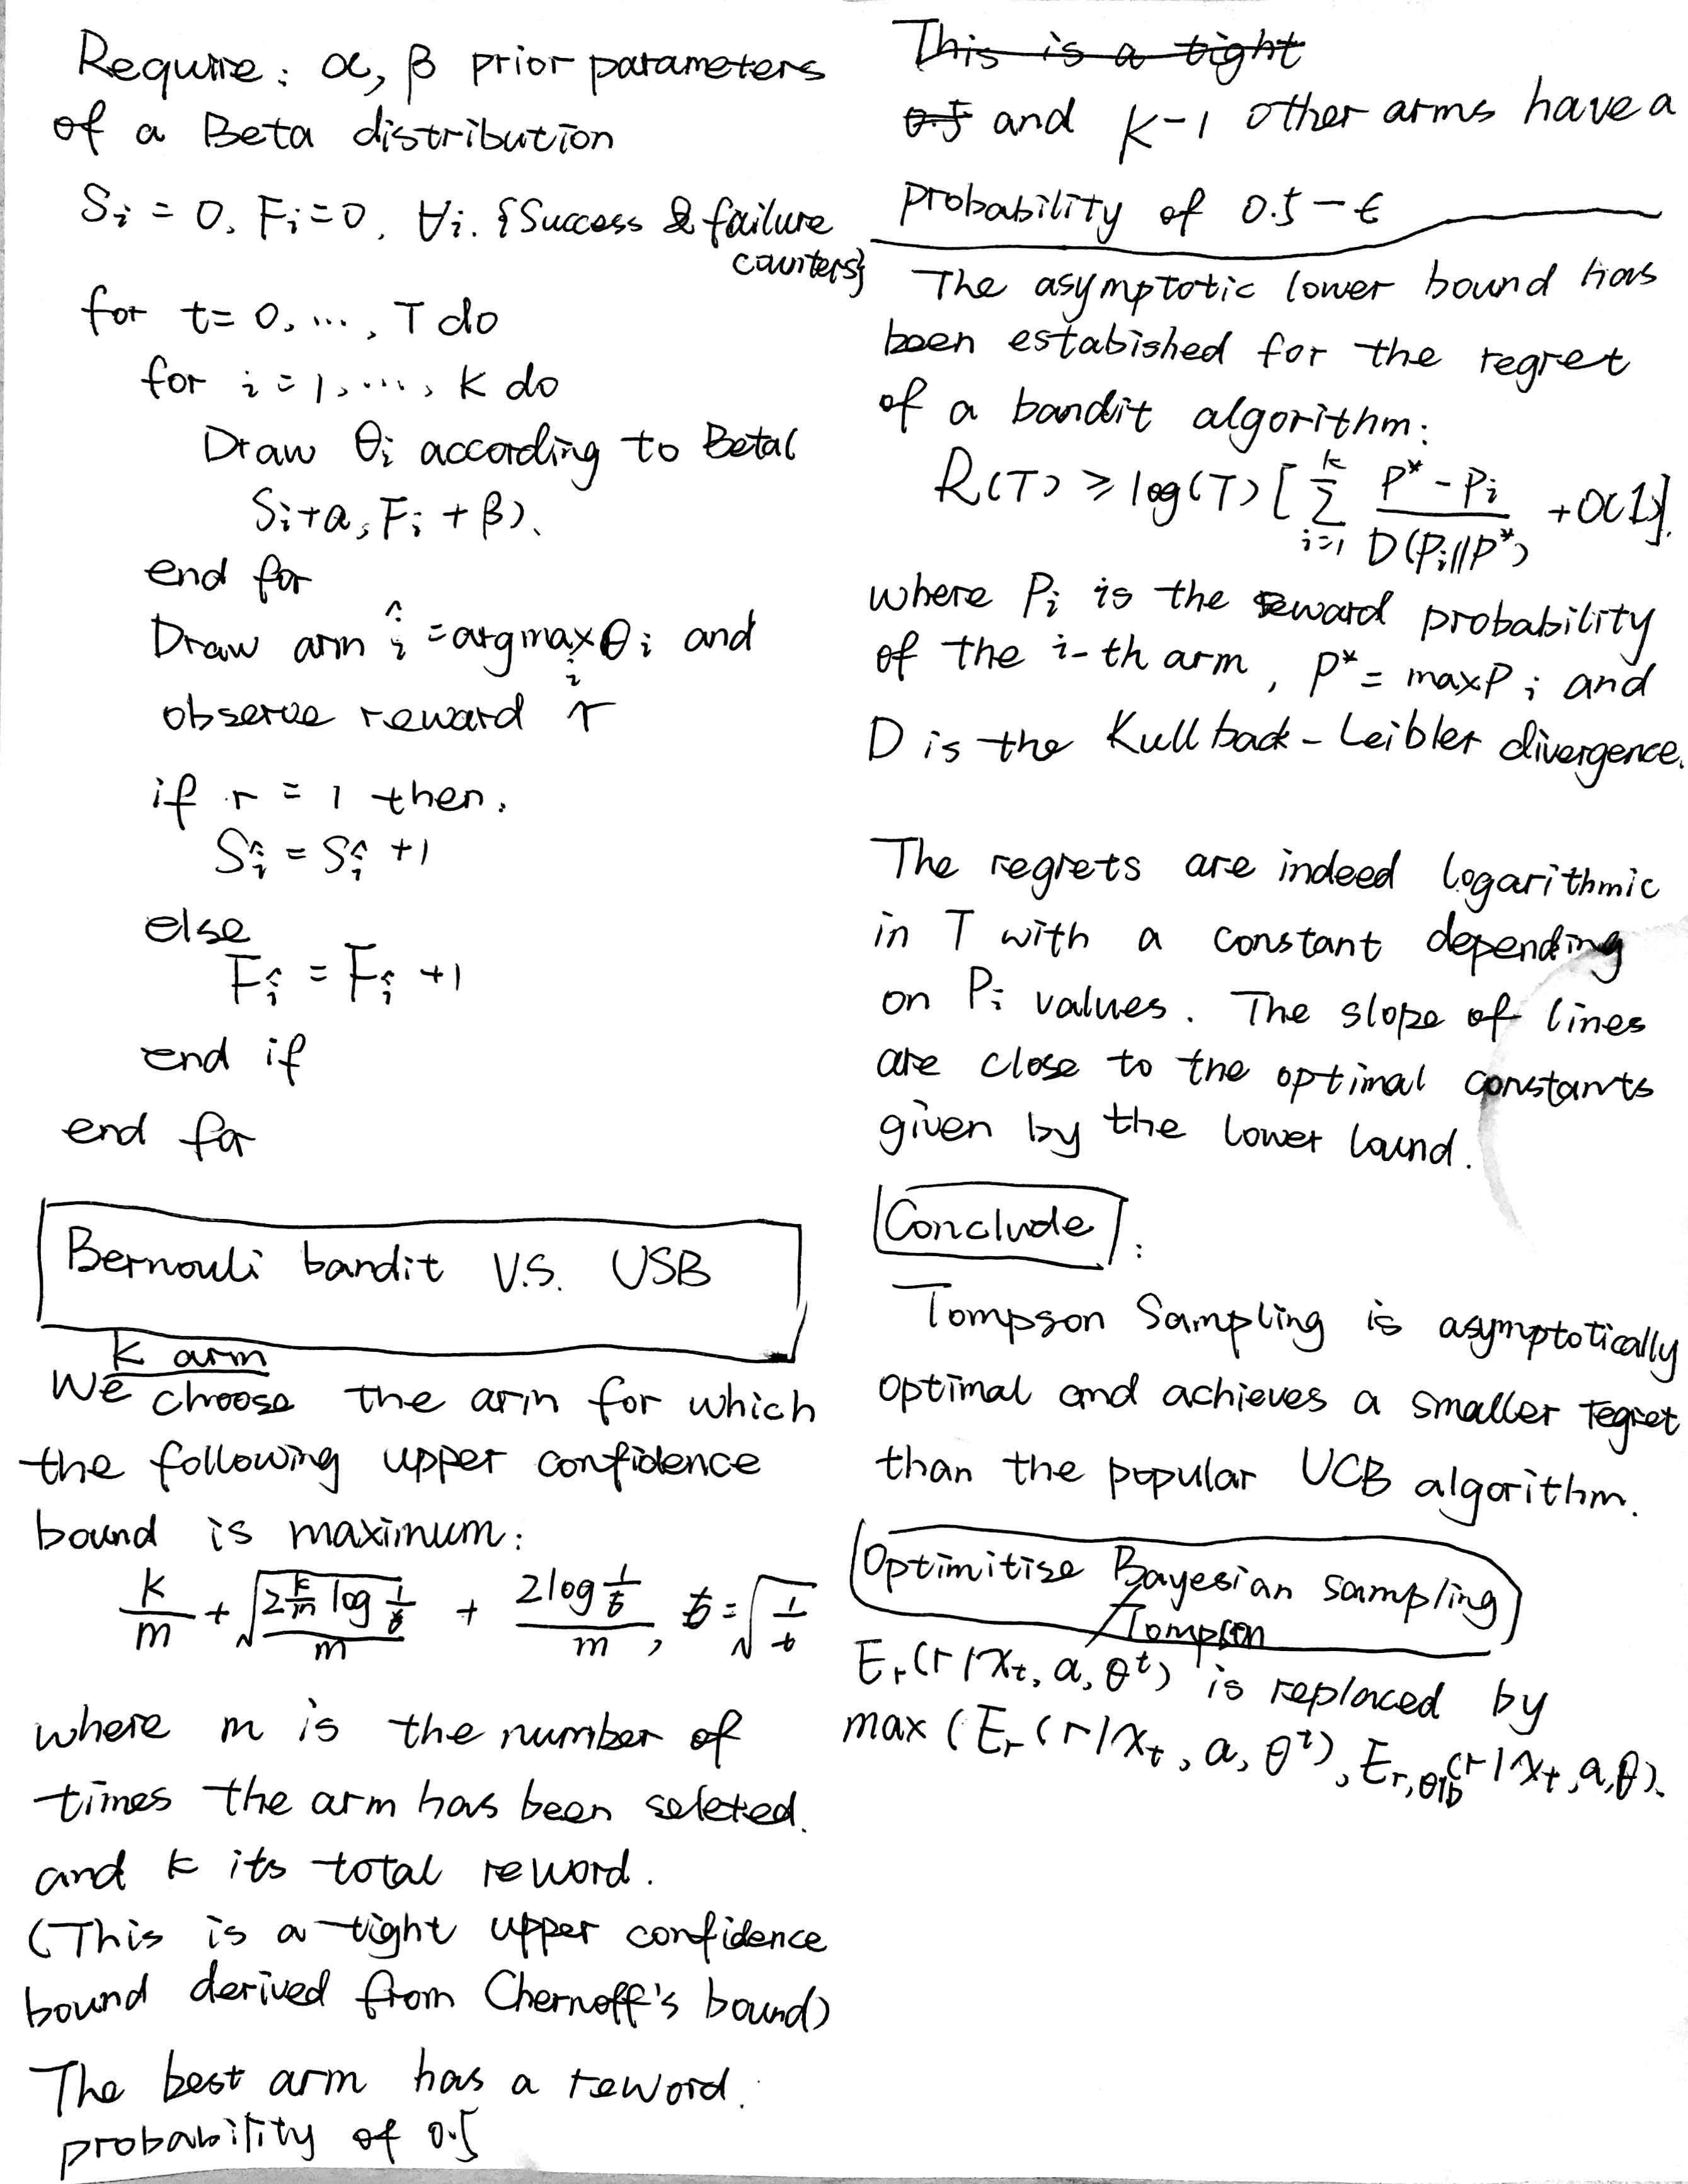 Require: α, β prior parameters
of a Beta distribution
Si = 0, Fi = 0, ∀i. {Success & failure
counters}
for t = 0, ..., T do
for i = 1, ..., K do
Draw θi according to Beta(
Si + α, Fi + β).
end for
Draw arm î = argmax_i θi and
observe reward r
if r = 1 then,
Sî = Sî + 1
else
Fî = Fî + 1
end if
end for
Bernouli bandit V.S. USB
K arm
We choose the arm for which
the following upper confidence
bound is maximum:
k/m + √(2 k/m log 1/δ)/m + 2 log 1/δ / m, δ = √(1/t)
where m is the number of
times the arm has been seleted.
and k its total reword.
(This is a tight upper confidence
bound derived from Chernoff's bound)
The best arm has a reword.
probability of 0.5
This is a tight
0.5 and K-1 other arms have a
probability of 0.5 - ε
The asymptotic lower bound has
been estabished for the regret
of a bandit algorithm:
R(T) ≥ log(T) [ Σ_{i=1}^{k} (P* - Pi) / D(Pi||P*) + O(1)].
where Pi is the reward probability
of the i-th arm, P* = max Pi and
D is the Kullback-Leibler divergence.
The regrets are indeed logarithmic
in T with a constant depending
on Pi values. The slope of lines
are close to the optimal constants
given by the lower lound.
Conclude :
Tompson Sampling is asymptotically
optimal and achieves a smaller regret
than the popular UCB algorithm.
Optimitise Bayesian sampling
/Tompson
Er(r|xt, a, θ^t) is replaced by
max(Er(r|xt, a, θ^t), Er,θ|D(r|xt, a, θ).